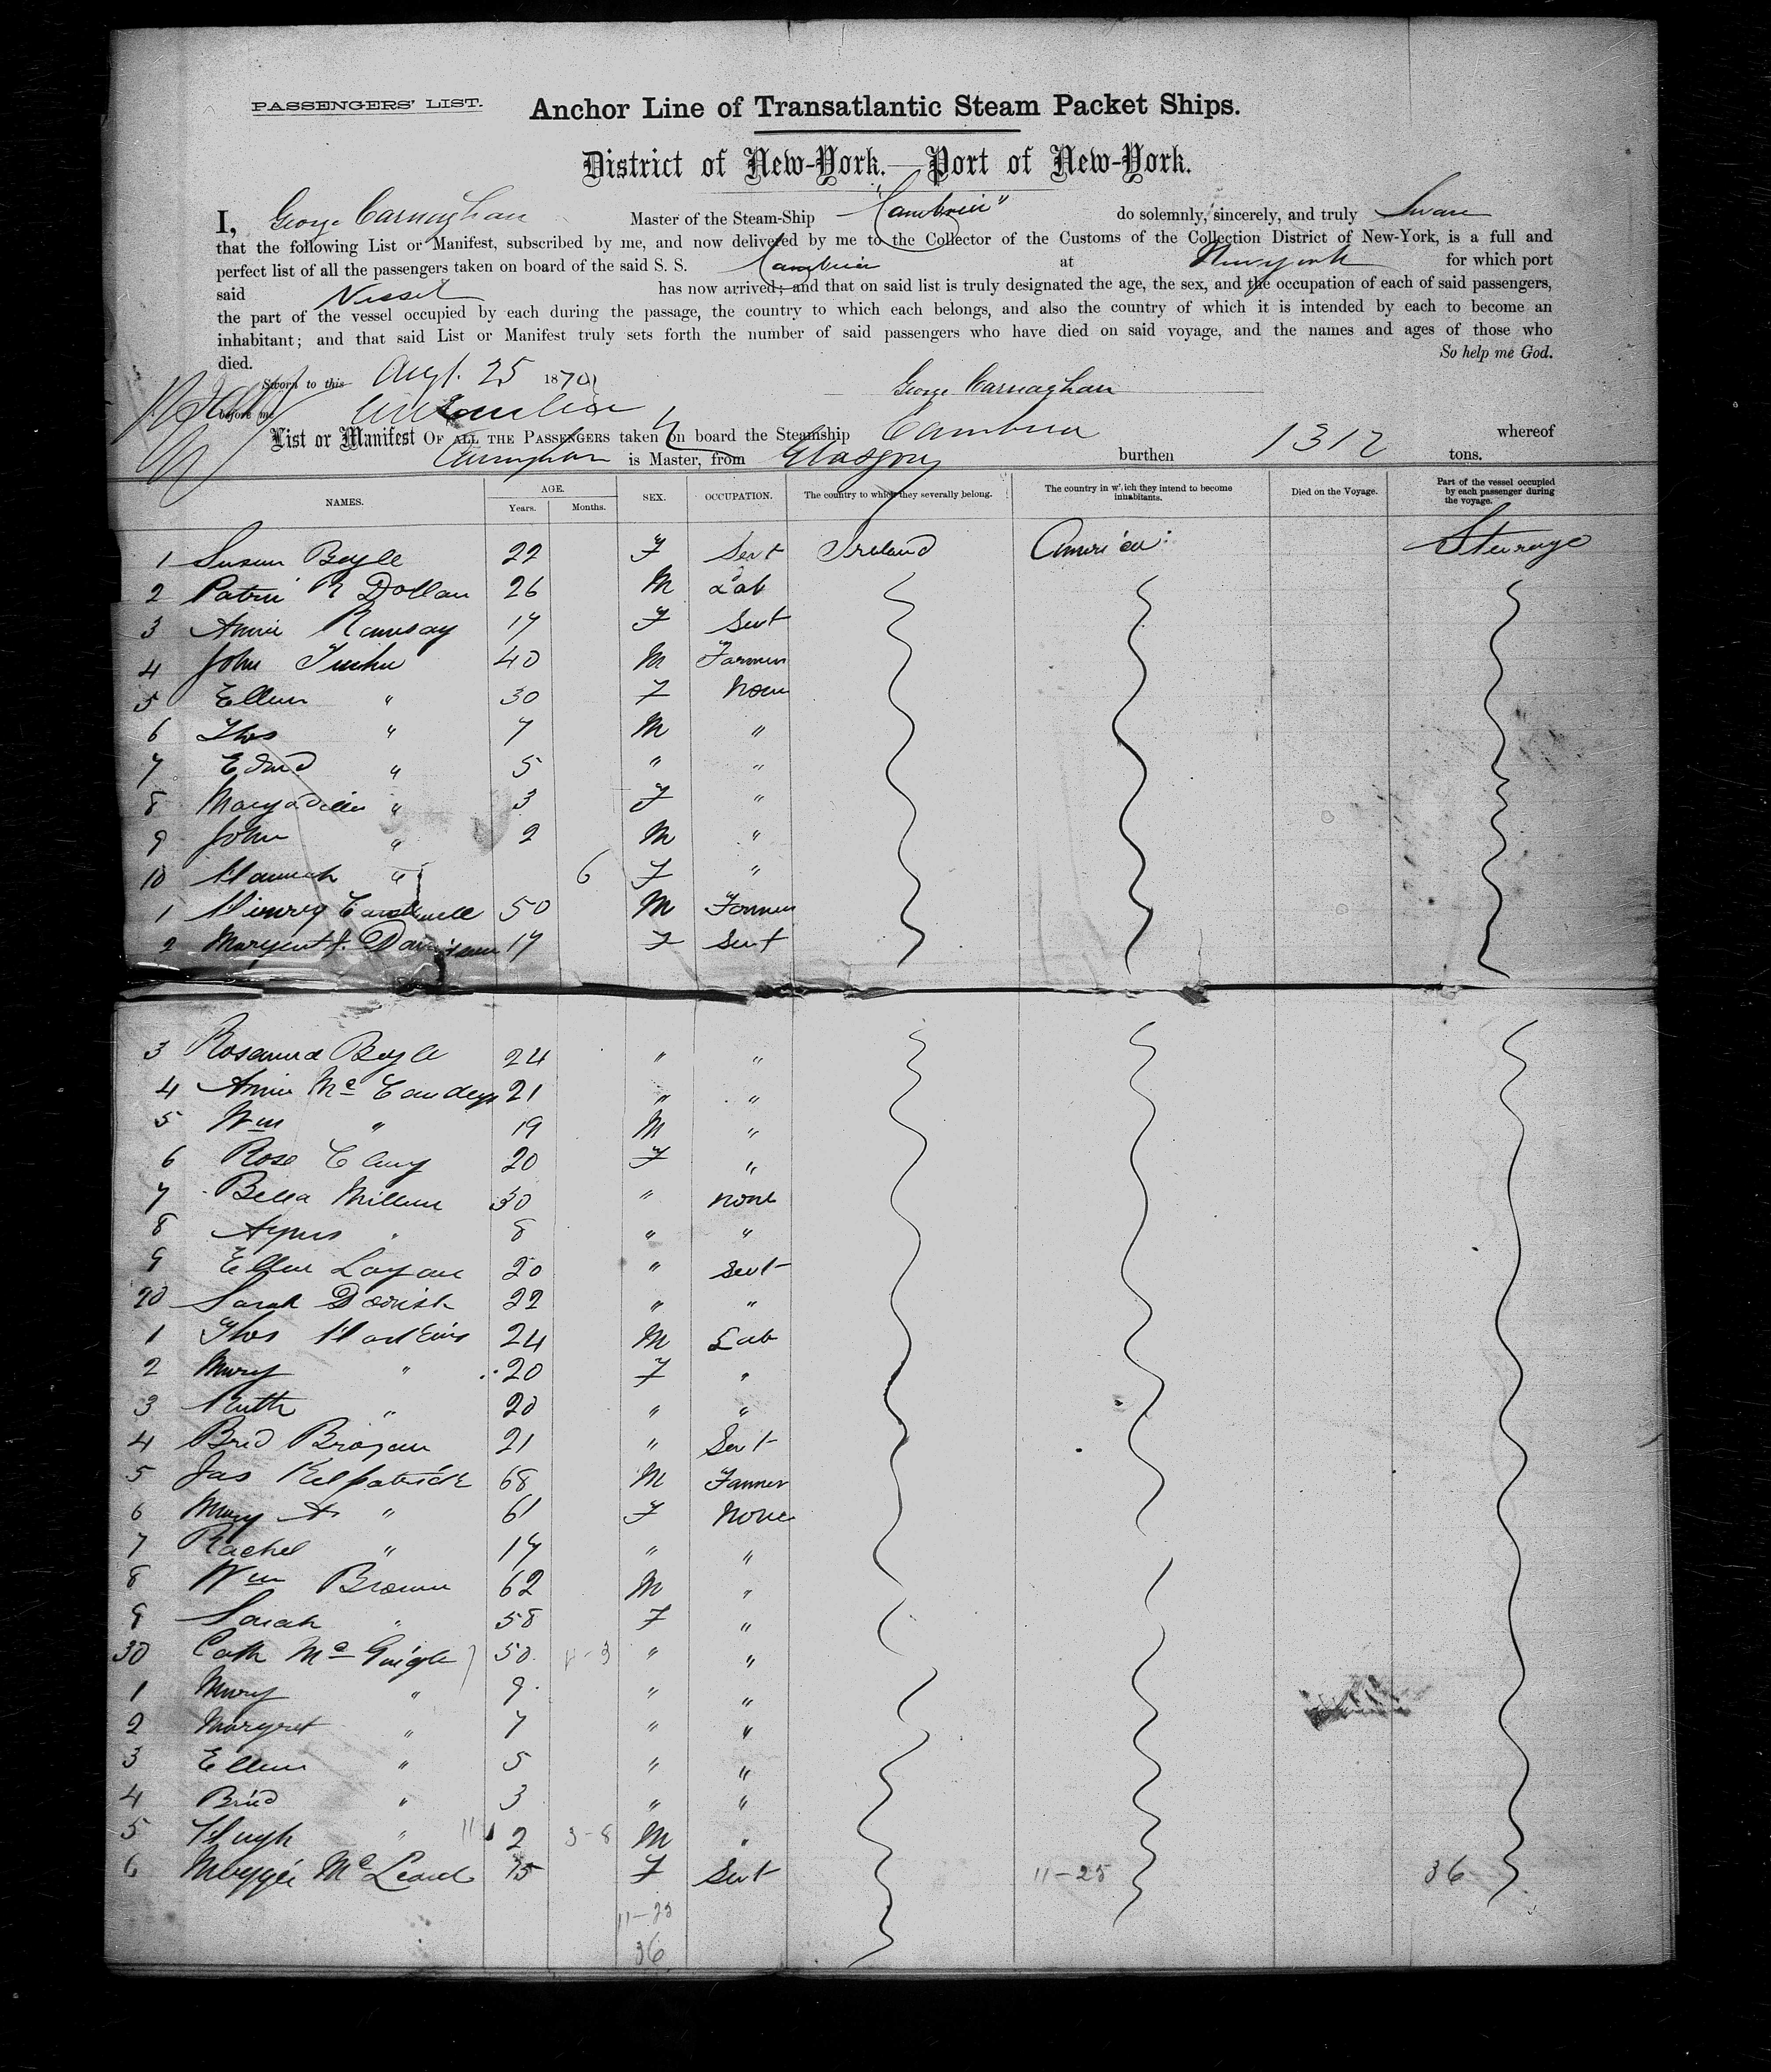 PASSENGERS' LIST. Anchor Line of Transatlantic Steam Packet Ships.
District of New-York.—Port of New-York.
I, George Carnaghan Master of the Steam-Ship "Cambria" do solemnly, sincerely, and truly Swear
that the following List or Manifest, subscribed by me, and now delivered by me to the Collector of the Customs of the Collection District of New-York, is a full and
perfect list of all the passengers taken on board of the said S. S. Cambria at New york for which port
said Vessel has now arrived; and that on said list is truly designated the age, the sex, and the occupation of each of said passengers,
the part of the vessel occupied by each during the passage, the country to which each belongs, and also the country of which it is intended by each to become an
inhabitant; and that said List or Manifest truly sets forth the number of said passengers who have died on said voyage, and the names and ages of those who
died. So help me God.
Sworn to this Augt. 25 1870 George Carnaghan
before me
List or Manifest OF ALL THE PASSENGERS taken on board the Steamship Cambria whereof
Carnaghan is Master, from Glasgow burthen 1312 tons.
NAMES. AGE. Years. Months. SEX. OCCUPATION. The country to which they severally belong. The country in which they intend to become inhabitants. Died on the Voyage. Part of the vessel occupied by each passenger during the voyage.
1 Susan Boyle 22 F Servt Ireland America Steerage
2 Patri K Dollan 26 M Lab
3 Annie Ramsay 17 F Servt
4 John 40 M Farmer
5 Ellen " 30 F None
6 Thos " 7 M "
7 Edwd " 5 " "
8 " 3 F "
9 John " 2 M "
10 Hannah " 6 F "
1 Henry Cardwell 50 M Farmer
2 Margaret J. Davidson 17 F Servt
3 Rosanna Boyle 24 " "
4 Annie Mc 21 " "
5 Wm " 19 M "
6 Rose 20 F "
7 Bella Millen 30 " None
8 Agnes " 8 " "
9 Ellen Logan 20 " Servt
20 Sarah 22 " "
1 Thos Hawkins 24 M Lab
2 Mary " 20 F "
3 Ruth " 20 " "
4 Brid Brogan 21 " Servt
5 Jas Kilpatrick 68 M Farmer
6 Mary A " 61 F None
7 Rachel " 17 " "
8 Wm Brown 62 M "
9 Sarah " 58 F "
30 Cath Mc Guigle 50 " "
1 Mary " 9 " "
2 Margret " 7 " "
3 Ellen " 5 " "
4 Brid " 3 " "
5 Hugh " 2 3-8 M "
6 Maggie Mc Leod 15 F Servt 11-25 36
11-25
36